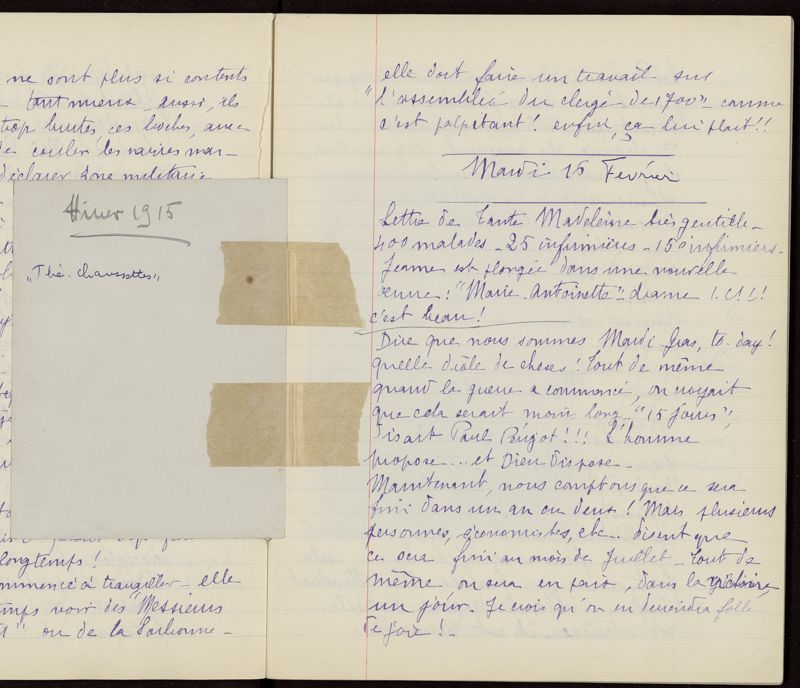 ne sont plus si contents
tant mieux _ aussi, ils
trop brutes ces boches, avec
de couler les navires mar-
déclarer zone militaire
Hiver 1915
"Thé. Chaussettes"
longtemps !
commencé à travailler _ elle
temps voir des "Messieurs
ou de la Sorbonne _
elle doit faire un travail sur
"l'assemblée du clergé de 1700" comme
c'est palpitant ! enfin, ça lui plait !!
Mardi 16 Février
Lettre de tante Madeleine très gentille _
400 malades _ 25 infirmières _ 150 infirmiers _
Jeanne est plongée dans une nouvelle
œuvre ! "Marie-Antoinette" _ drame !.!.!.!
c'est beau !
Dire que nous sommes Mardi gras, to-day !
quelle drôle de choses ! tout de même
quand la guerre a commencé, on croyait
que cela serait moins long _ "15 jours",
disait Paul !!! L'homme
propose ... et Dieu dispose _
Maintenant, nous comptons que ce sera
fini dans un an ou deux ! Mais plusieurs
personnes, économistes, etc.. disent que
ce sera fini au mois de Juillet _ tout de
même on sera en paix, dans la victoire,
un jour. Je crois qu'on en deviendra folle
de joie ! _